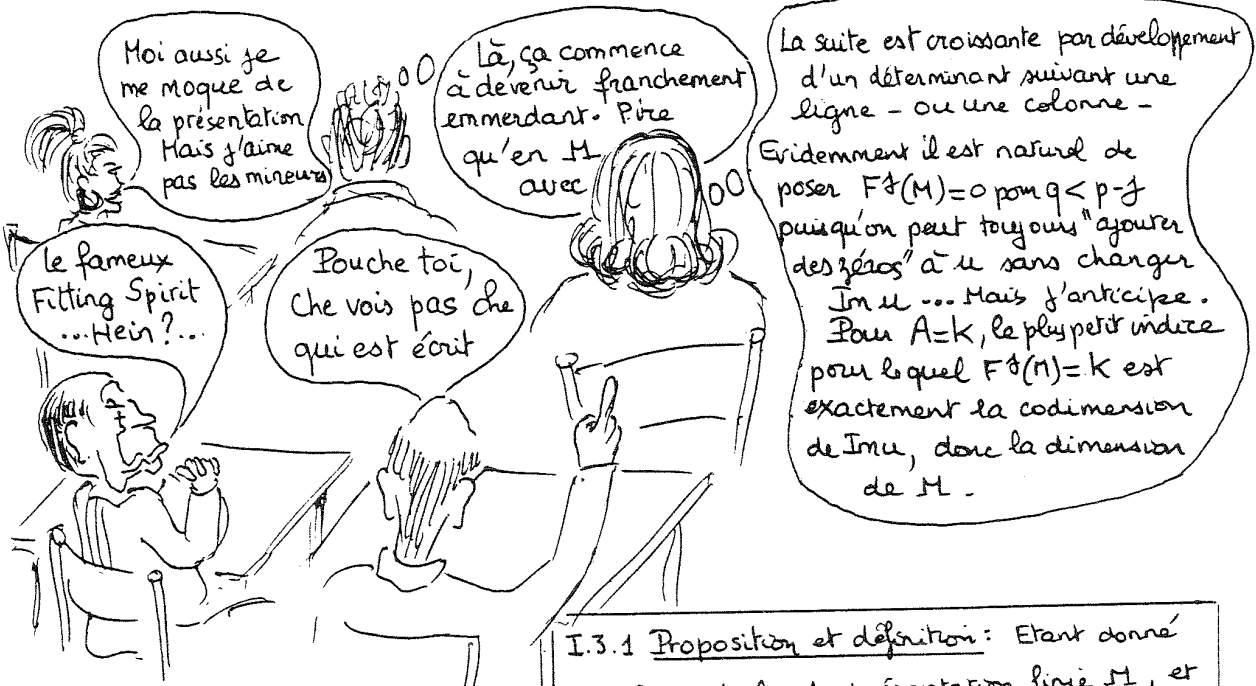 Moi aussi je
me moque de
la présentation
Mais j'aime
pas les mineurs
Là, ça commence
à devenir franchement
emmerdant. Pire
qu'en M
avec
La suite est croissante par développement
d'un déterminant suivant une
ligne – ou une colonne –
Evidemment il est naturel de
poser F^j(M)=0 pour q < p-j
puisqu'on peut toujours "ajouter
des zéros" à u sans changer
Im u ... Mais j'anticipe.
Pour A=k, le plus petit indice
pour lequel F^j(M)=k est
exactement la codimension
de Im u, donc la dimension
de M.
Le fameux
Fitting Spirit
...Hein?...
Pouche toi,
che vois pas che
qui est écrit
I.3.1 Proposition et définition : Etant donné
présentation finie M, et